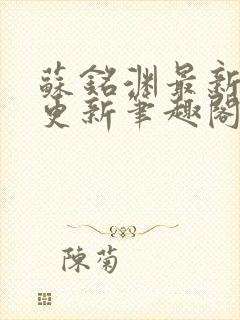 蘇銘淵最新
更新筆趣閣
陳菊